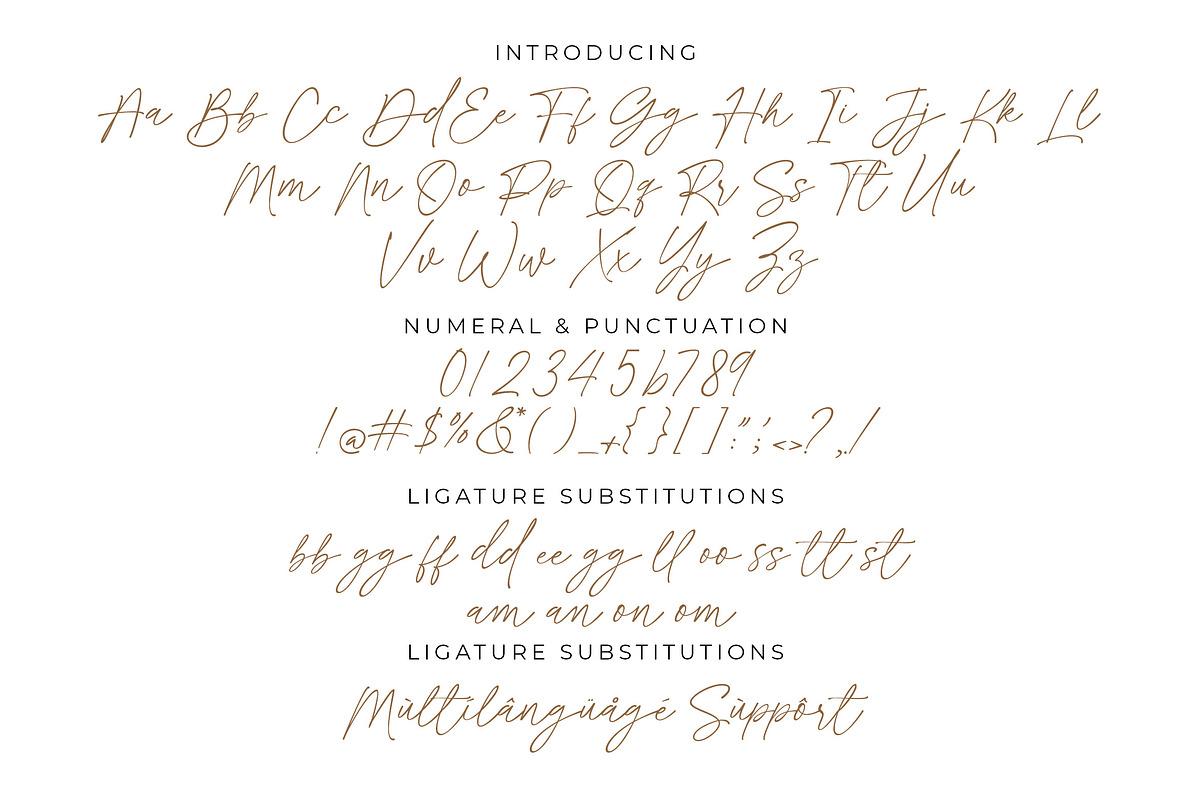 INTRODUCING
Aa Bb Cc Dd Ee Ff Gg Hh Ii Jj Kk Ll
Mm Nn Oo Pp Qq Rr Ss Tt Uu
Vv Ww Xx Yy Zz
NUMERAL & PUNCTUATION
0123456789
!@#$%&*()_+{}[]:";'<>?,./
LIGATURE SUBSTITUTIONS
bb gg ff dd ee gg ll oo ss tt st
am an on om
LIGATURE SUBSTITUTIONS
Mùltílângüågé Sùppôrt